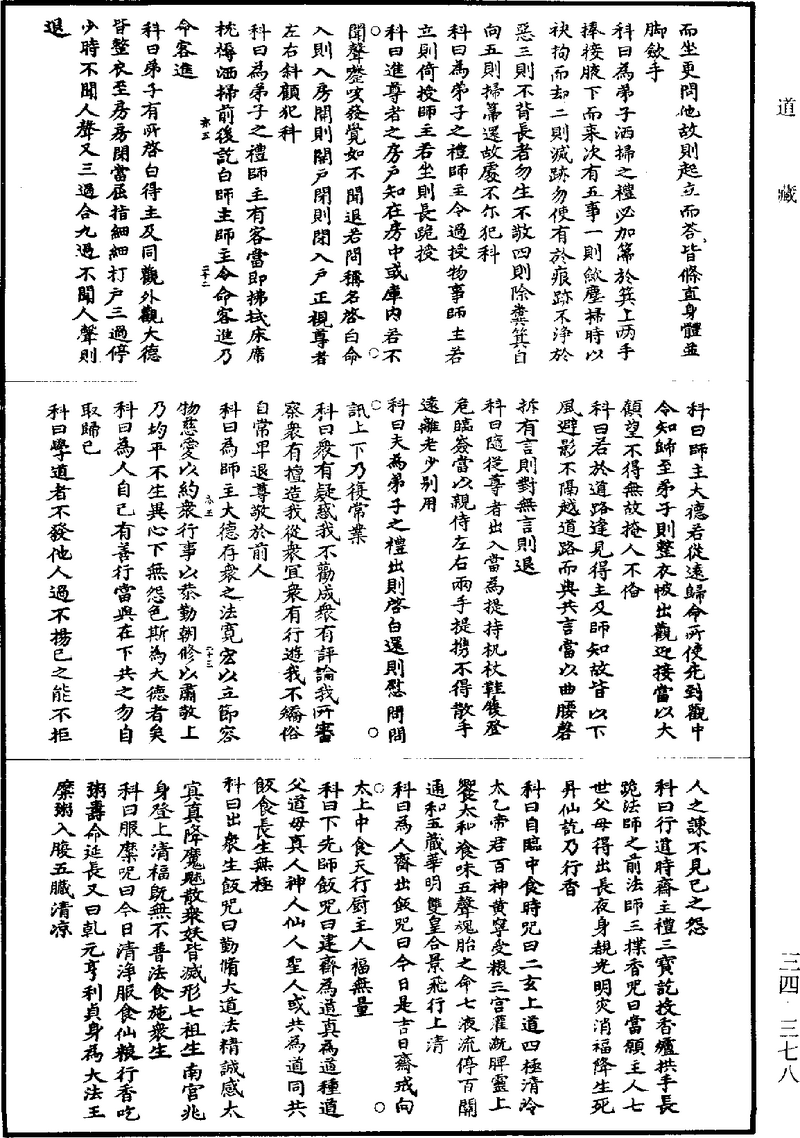 道藏
而坐更問他故則起立而答皆條直身體並
脚斂手
科曰為弟子洒掃之禮必加箒於箕上兩手
捧接腋下而来次有五事一則斂塵掃時以
袂拘而却二則滅跡勿使有於痕跡不淨於
惡三則不背長者勿生不敬四則除糞箕自
向五則掃箒還故處不尓犯科
科曰為弟子之禮師主令過授物事師主若
立則倚授師主若坐則長跪授
科曰進尊者之房户知在房中或庫内若不
聞聲謦欬發覺如不聞退若問稱名啓白命
入則入房開則開戶閉則閉入戶正視尊者
左右斜顧犯科
科曰為弟子之禮師主有客當即拂拭床席
枕褥洒掃前後訖白師主師主令命客進乃
命客進
科曰弟子有所啓白得主及同觀外觀大德
皆整衣至房房閉當屈指細細打戶三過停
少時不聞人聲又三過合九過不聞人聲則
退
科曰師主大德若從遠歸命所使先到觀中
令知歸至弟子則整衣帔出觀迎接當以大
顧望不得無故掩入不俻
科曰若於道路逢見得主及師知故皆以下
風避影不隔越道路而與共言當以曲腰磬
拆有言則對無言則退
科曰隨從尊者出入當為提持杌杖鞋履登
危臨嶮當以親侍左右兩手提携不得散手
遠離老少别用
科曰夫為弟子之禮出則啓白還則慰問問
訊上下乃復常業
科曰衆有疑惑我不勸成衆有評論我所審
察衆有檀造我從衆宜衆有行遊我不矯俗
自常卑退尊敬於前人
科曰為師主大德存衆之法寬宏以立節容
物慈愛以約衆行事以恭勤朝修以肅敬上
乃均平不生異心下無怨色斯為大德者矣
科曰為人自己有善行當與在下共之勿自
取歸己
科曰學道者不發他人過不揚己之能不拒
人之諫不見己之怨
科曰行道時齋主禮三寶訖授香爐拱手長
跪法師之前法師三揲香咒曰當願主人七
世父母得出長夜身覩光明灾消福降生死
昇仙訖乃行香
科曰自臨中食時咒曰二玄上道四極清泠
太乙帝君百神黄寧受粮三宮灌溉脾靈上
饗太和飡味五聲魂胎之命七液流停百關
通和五藏華明雙皇合景飛行上清
科曰為人齋出飯咒曰今日是吉日齋戒向
太上中食天行厨主人福無量
科曰下先師飯咒曰建齋為道真為道種道
父道母真人神人仙人聖人或共為道同共
飯食長生無極
科曰出衆生飯咒曰勤脩大道法精誠感太
寘真降魔魅散衆妖皆滅形七祖生南宮兆
身登上清福既無不普法食施衆生
科曰服糜咒曰今日清浄服食仙粮行香吃
粥壽命延長又曰乹元亨利貞身為大法王
糜粥入腹五臟清凉
三四·三七八